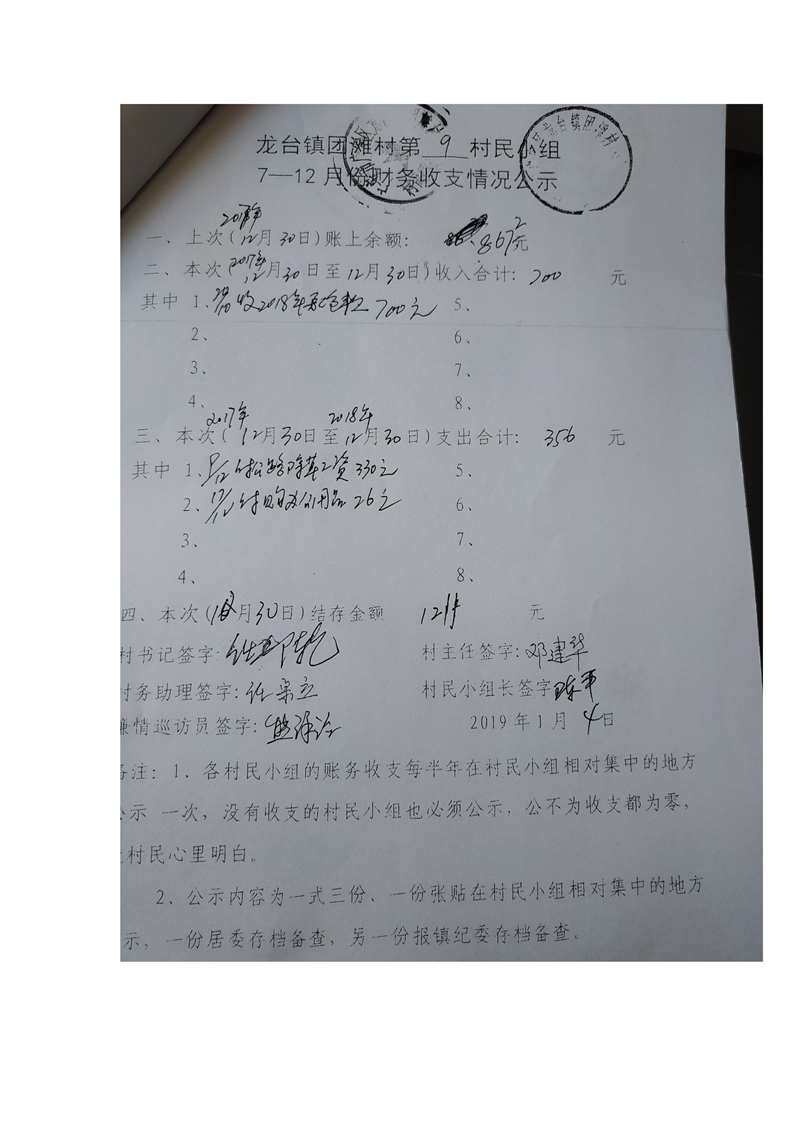 龙台镇团滩村第 9 村民小组
7—12月份财务收支情况公示
2017年
一、上次(12月30日)账上余额: 867元
二、本次(2017年12月30日至12月30日)收入合计: 700 元
其中 1、 收2018年承包款 700元 5、
2、 6、
3、 7、
4、 8、
2017年 2018年
三、本次( 12月30日至12月30日)支出合计: 356 元
其中 1、 付 工资330元 5、
2、 付购办公用品26元 6、
3、 7、
4、 8、
四、本次(12月30日)结存金额 1211 元
村书记签字: 村主任签字:邓建华
村务助理签字:任宗立 村民小组长签字 陈军
廉情巡访员签字: 2019年1月 4日
备注: 1、各村民小组的账务收支每半年在村民小组相对集中的地方
公示 一次, 没有收支的村民小组也必须公示, 公不为收支都为零,
让村民心里明白。
2、公示内容为一式三份、一份张贴在村民小组相对集中的地方
示, 一份居委存档备查, 另一份报镇纪委存档备查。